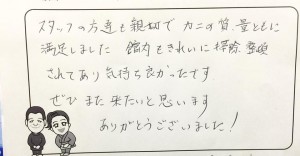 スタッフの方達も親切で カニの質、量ともに
満足しました 館内もきれいに掃除、整頓
されてあり気持ち良かったです
ぜひ また来たいと思います
ありがとうございました!